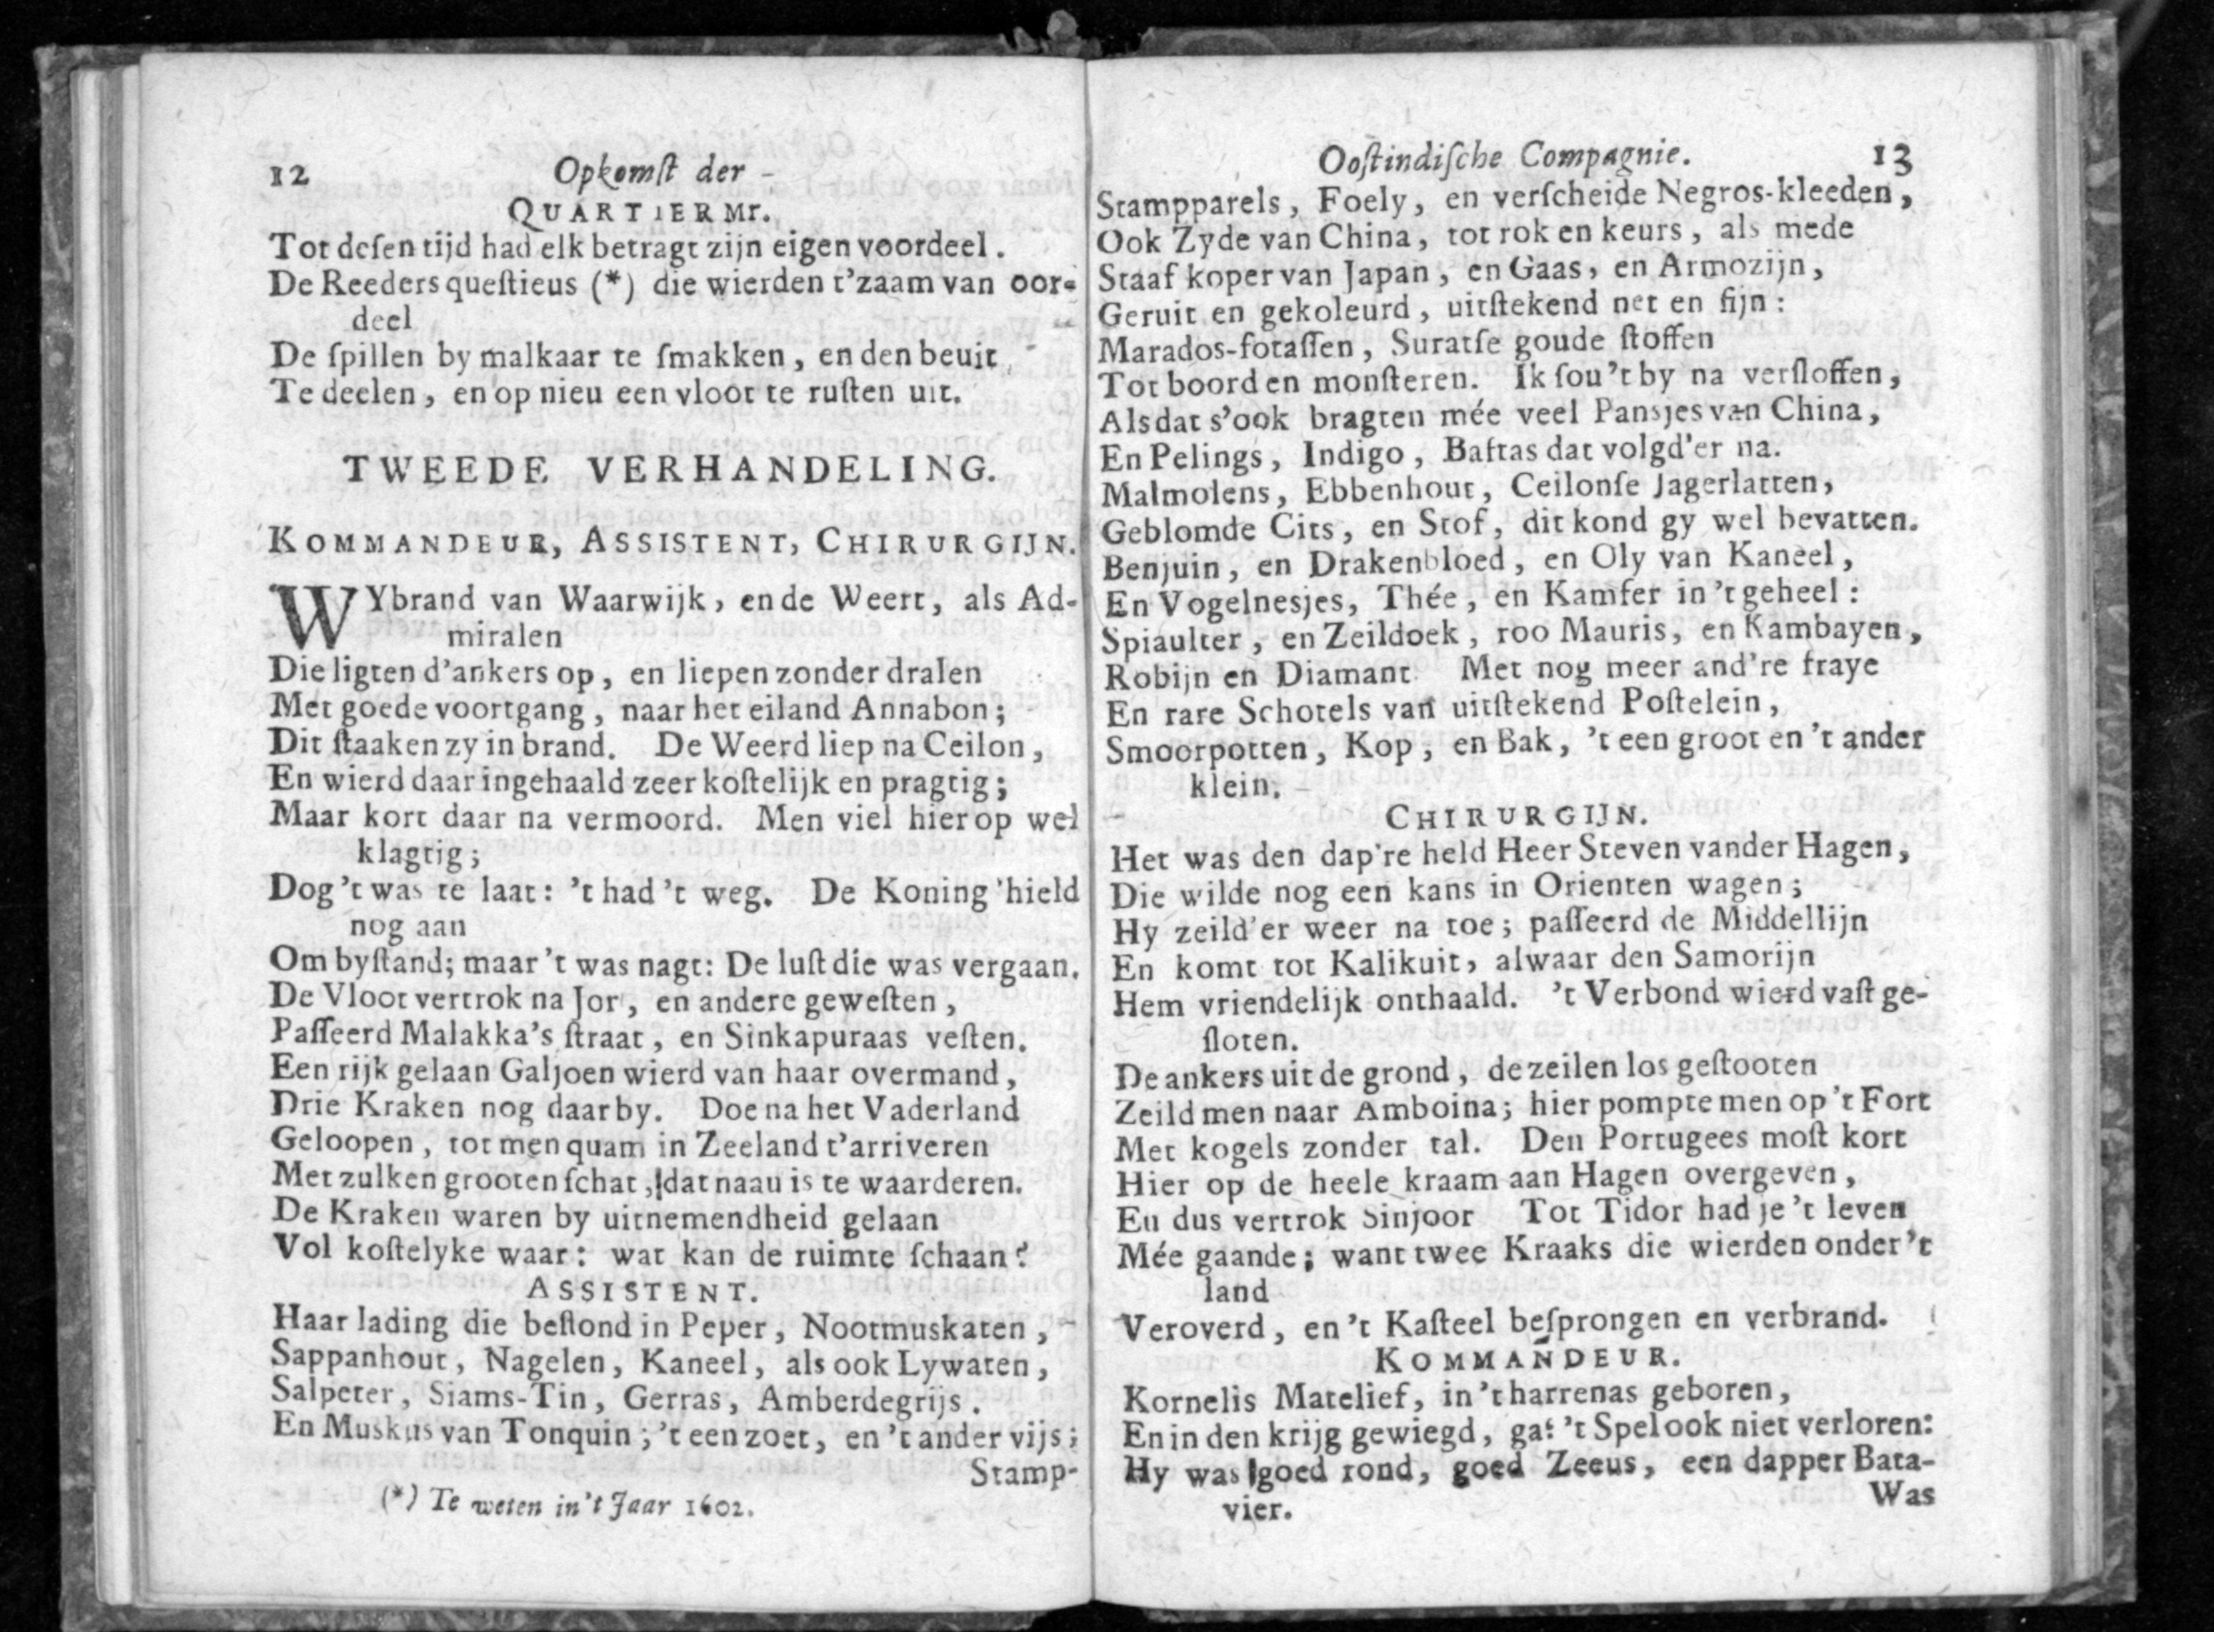 12 Opkomſt der
QUARTIERMr.
Tot deſen tijd had elk betragt zijn eigen voordeel.
De Reeders queſtieus (*) die wierden t'zaam van oor-
deel
De ſpillen by malkaar te ſmakken, en den beuit
Te deelen, en op nieu een vloot te ruſten uit.
TWEEDE VERHANDELING.
KOMMANDEUR, ASSISTENT, CHIRURGIJN.
WYbrand van Waarwijk, en de Weert, als Ad-
miralen
Die ligten d'ankers op, en liepen zonder dralen
Met goede voortgang, naar het eiland Annabon;
Dit ſtaaken zy in brand. De Weerd liep na Ceilon,
En wierd daar ingehaald zeer koſtelijk en pragtig;
Maar kort daar na vermoord. Men viel hier op wel
klagtig;
Dog 't was te laat: 't had 't weg. De Koning hield
nog aan
Om byſtand; maar 't was nagt: De luſt die was vergaan.
De Vloot vertrok na Jor, en andere geweſten,
Paſſeerd Malakka's ſtraat, en Sinkapuraas veſten.
Een rijk gelaan Galjoen wierd van haar overmand,
Drie Kraken nog daar by. Doe na het Vaderland
Geloopen, tot men quam in Zeeland t'arriveren
Met zulken grooten ſchat, dat naau is te waarderen.
De Kraken waren by uitnemendheid gelaan
Vol koſtelyke waar: wat kan de ruimte ſchaan?
ASSISTENT.
Haar lading die beſtond in Peper, Nootmuskaten,
Sappanhout, Nagelen, Kaneel, als ook Lywaten,
Salpeter, Siams-Tin, Gerras, Amberdegrijs.
En Muskus van Tonquin; 't een zoet, en 't ander vijs;
Stamp-
(*) Te weten in 't Jaar 1602.
Ooſtindiſche Compagnie. 13
Stampparels, Foely, en verſcheide Negros-kleeden,
Ook Zyde van China, tot rok en keurs, als mede
Staaf koper van Japan, en Gaas, en Armozijn,
Geruit en gekoleurd, uitſtekend net en fijn:
Marados-fotaſſen, Suratſe goude ſtoffen
Tot boord en monſteren. Ik ſou 't by na verſloffen,
Als dat s'ook bragten mée veel Pansjes van China,
En Pelings, Indigo, Baftas dat volgd'er na.
Malmolens, Ebbenhout, Ceilonſe Jagerlatten,
Geblomde Cits, en Stof, dit kond gy wel bevatten.
Benjuin, en Drakenbloed, en Oly van Kaneel,
En Vogelnesjes, Thée, en Kamfer in 't geheel:
Spiaulter, en Zeildoek, roo Mauris, en Kambayen,
Robijn en Diamant. Met nog meer and're fraye
En rare Schotels van uitſtekend Poſtelein,
Smoorpotten, Kop, en Bak, 't een groot en 't ander
klein.
CHIRURGIJN.
Het was den dap're held Heer Steven vander Hagen,
Die wilde nog een kans in Orienten wagen;
Hy zeild'er weer na toe; paſſeerd de Middellijn
En komt tot Kalikuit, alwaar den Samorijn
Hem vriendelijk onthaald. 't Verbond wierd vaſt ge-
ſloten.
De ankers uit de grond, de zeilen los geſtooten
Zeild men naar Amboina; hier pompte men op 't Fort
Met kogels zonder tal. Den Portugees moſt kort
Hier op de heele kraam aan Hagen overgeven,
En dus vertrok Sinjoor Tot Tidor had je 't leven
Mée gaande; want twee Kraaks die wierden onder 't
land
Veroverd, en 't Kaſteel beſprongen en verbrand.
KOMMANDEUR.
Kornelis Matelief, in 't harrenas geboren,
En in den krijg gewiegd, gaf 't Spel ook niet verloren:
Hy was goed rond, goed Zeeus, een dapper Bata-
vier.
Was